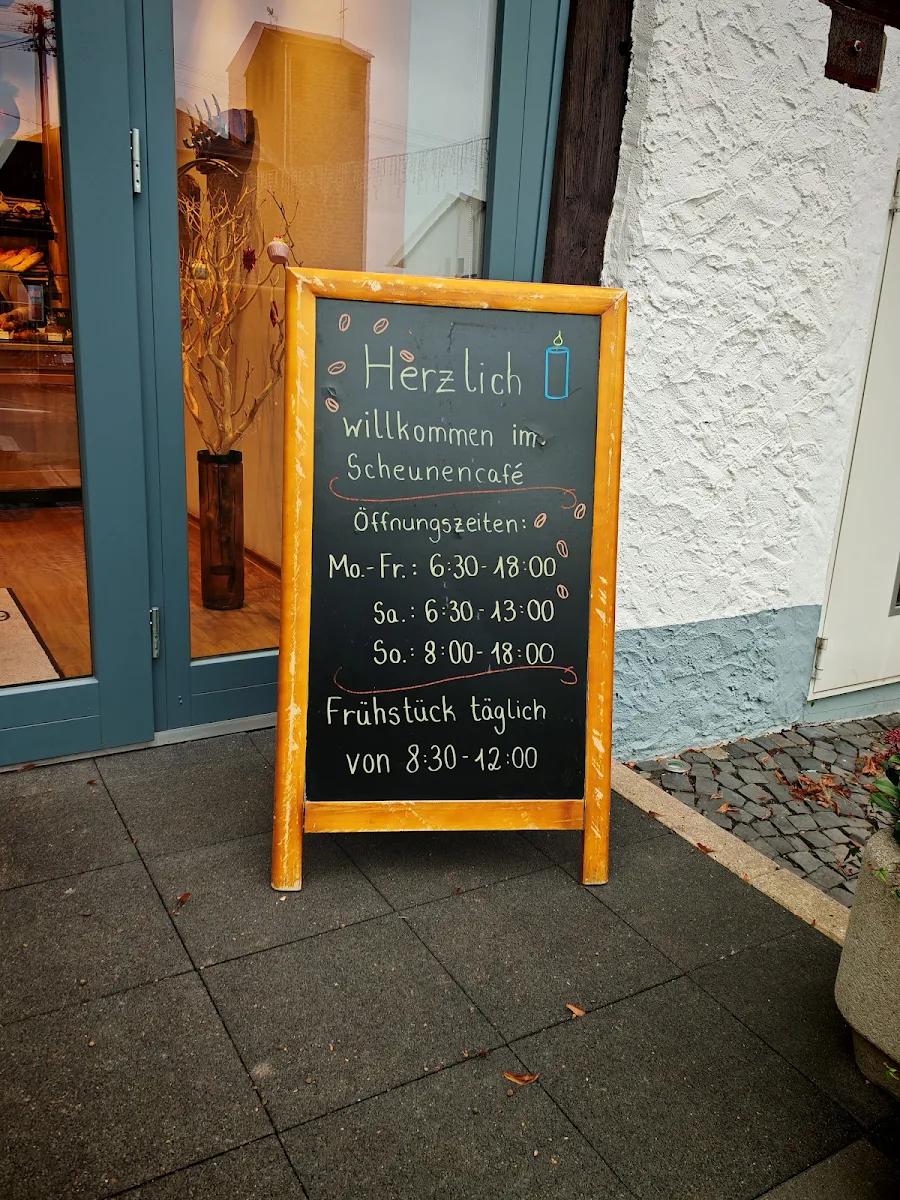 Herzlich
willkommen im
Scheunencafé
Öffnungszeiten:
Mo.-Fr.: 6:30-18:00
Sa.: 6:30-13:00
So.: 8:00-18:00
Frühstück täglich
von 8:30-12:00